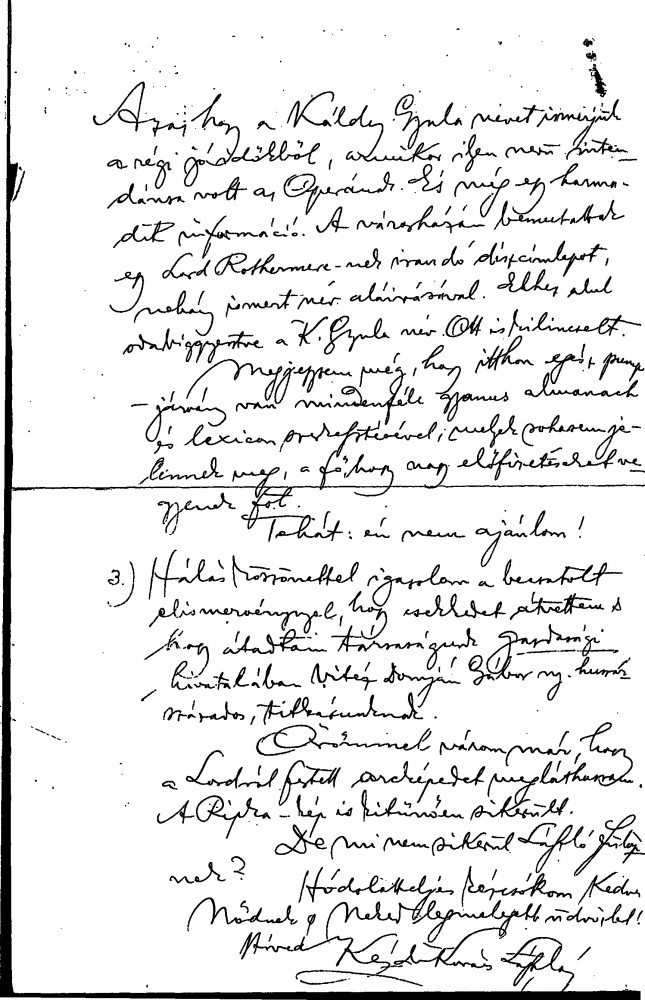 Azaz, hogy a Káldy Gyula nevet ismerjük
a régi jó időkből, amikor ilyen nevű inten-
dánsa volt az Operának. És még egy harma-
dik információ. A városházán bemutattak
egy Lord Rothermere-nek irandó díszcímlapot,
nehány ismert név aláirásával. Ehhez alul
odabiggyesztve a K. Gyula név. Ott is kilincselt.
Megjegyzem még, hogy itthon egész pump
-járvány van mindenféle gyanus almanach
és lexicon szerkesztésével, melyek sohasem je-
lennek meg, a fő, hogy nagy előfizetéseket ve-
gyenek föl.
Tehát: én nem ajánlom!
3.) Hálás köszönettel igazolom a becsatolt
elismervénynyel, hogy csekkedet átvettem s
hogy átadtam társaságunk gazdasági
hivatalában Vitéz Domján Gábor ny. huszár
százados, titkárunknak.
Örömmel várom már, hogy
a Lordról festett arcképedet megláthassam.
A Pipka-kép is kitünően sikerült.
De mi nem sikerül László Fülöp
nek?
Hódolatteljes kézcsókom Kedves
Nődnek s Neked legmelegebb üdvözlet!
híved Kézdi Kovács László